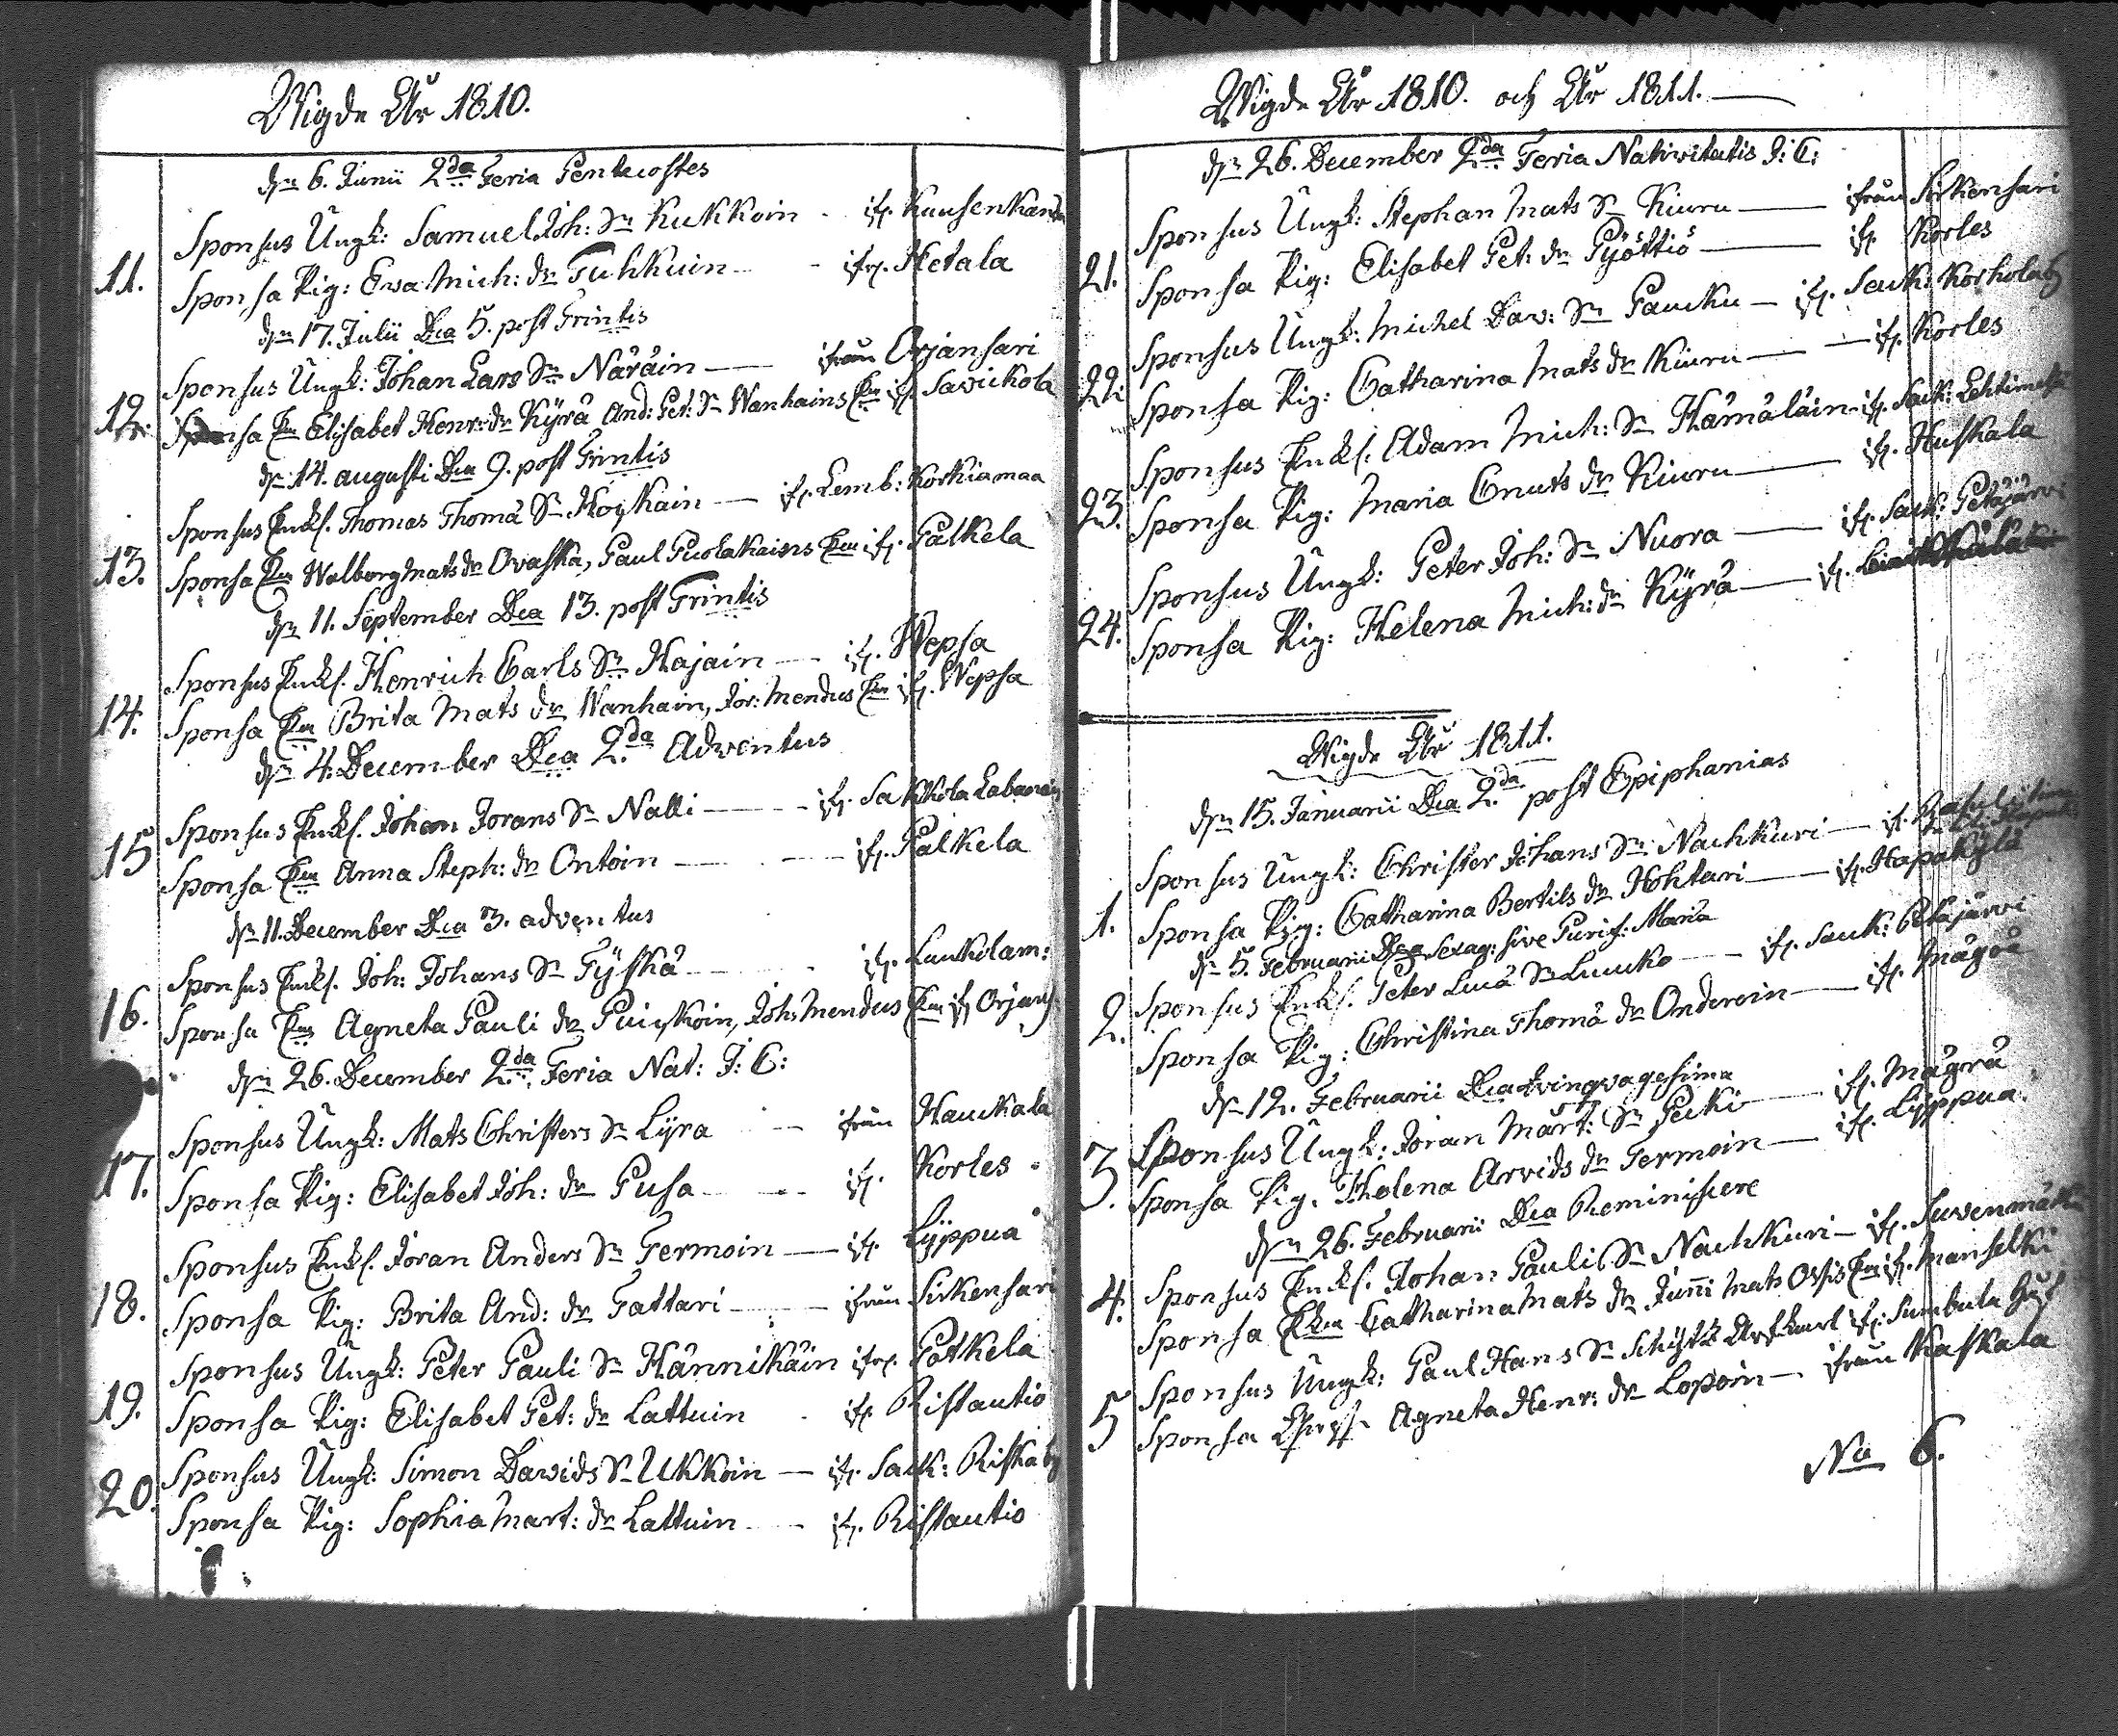 Wigde År 1810.
dn 6. Junii 2da Feria Pentecostes
Sponsus Ungk: Samuel Joh: Sn Kukkoin - ifr. Kunsenkanda
11. Sponsa Pig: Ewa Mich: dr Tuhkuin - ifr. Hetala
dn 17. Julii Dca 5. post Trin:tis
Sponsus Ungk: Johan Lars Sn Näräin - ifrån Orjansari
12. Sponsa Enk Elisabet Henr: dr Kyrä And: Pet: Sn Wanhains Enk ifr. Savickola
dn 14. augusti Dca 9. post Trin:tis
Sponsus Enkl. Thomas Thomä Sn Hoykain - ifr. Lemb: Korkiamaa
13. Sponsa Enk Walborg Mats dr Ovaska, Paul Puolakains Enk ifr. Palkela
dn 11. September Dca 13. post Trin:tis
Sponsus Enkl. Henrich Carls Sn Hajain - ifr. Wepsa
14. Sponsa Enk Brita Mats dr Wanhain, Jör: Mendus Enk ifr. Wepsa
dn 4. December Dca 2.da Adventus
Sponsus Enkl. Johan Jorans Sn Nalli - ifr. Sakkola
15 Sponsa Enk Anna Steph: dr Ontoin - ifr. Palkela
dn 11. December Dca 3. adventus
Sponsus Enkl. Joh: Johans Sn Tyskä - ifr. Lunkolam:
16. Sponsa Enk Agneta Pauli dr Puiykoin, Joh: Mendus Enk ifr Orjans
dn 26. December 2da Feria Nat: J: C:
Sponsus Ungk: Mats Christers Sn Lyra - ifrån Hauckala
17. Sponsa Pig: Elisabet Joh: dr Pusa - ifr. Korles
Sponsus Enkl. Joran Anders Sn Termoin - ifr. Lyppua
18. Sponsa Pig: Brita And: dr Tattari - ifrån Sirkensari
Sponsus Ungk: Peter Pauli Sn Hännikäin ifr. Potkela
19. Sponsa Pig: Elisabet Pet: dr Lattuin - ifr. Ristautio
Sponsus Ungk: Simon Davids Sn Ukkoin - ifr. Sack: Riska by
20. Sponsa Pig: Sophia Mart: dr Lattuin - ifr. Ristautio
Wigde År 1810. och År 1811.
dn 26. December 2da Feria Nativitatis J: C:
Sponsus Ungk: Stephan Mats Sn Kiuru - ifrån Sirkensari
21. Sponsa Pig: Elisabet Pet: dr Pyöttiö - ifr. Korles
Sponsus Ungk: Michel Dav: Sn Paucku - ifr. Sack: Korholaby
22. Sponsa Pig: Catharina Mats dr Kiuru - ifr. Korles
Sponsus Enkl. Adam Mich: Sn Hämäläin - ifr. Sack:
23. Sponsa Pig: Maria Cnuts dr Kiuru - ifr. Huskala
Sponsus Ungk: Peter Joh: Sn Nuora - ifr. Sack: Petäjärvi
24. Sponsa Pig: Helena Mich: dr Kyrä - ifr.
Wigde År 1811.
dn 15. Januarii Dca 2.da post Epiphanias
Sponsus Ungk: Christer Johans Sn Nachkuri - if.
1. Sponsa Pig: Catharina Bertils dr Hohtari - ifr. Hapakylä
dn 5. Februarii Dca Sexag: sive Purif: Mariä
Sponsus Enkl. Peter Lucä Sn Luucko - ifr. Sack: Petäjärvi
2. Sponsa Pig: Christina Thomä dr Onderoin - ifr. Mägrä
dn 12. Februarii Dca Qvinqvagesima
3. Sponsus Ungk: Joran Märt: Sn Pecki - ifr. Mägrä
Sponsa Pig: Helena Arvids dr Termoin - ifr. Lyppua
dn 26. Februarii Dca Reminiscere
4. Sponsus Enkl. Johan Pauli Sn Nachkuri - ifr. Suvenmäki
Sponsa Enka Catharina Mats dr Junni Mats Ossis Enk ifr. Manselki
Sponsus Ungk: Paul Hans Sn Schytz ifr. Sumbula
5 Sponsa Agneta Henr: dr Lopoin - ifrån Kaskala
No 6.